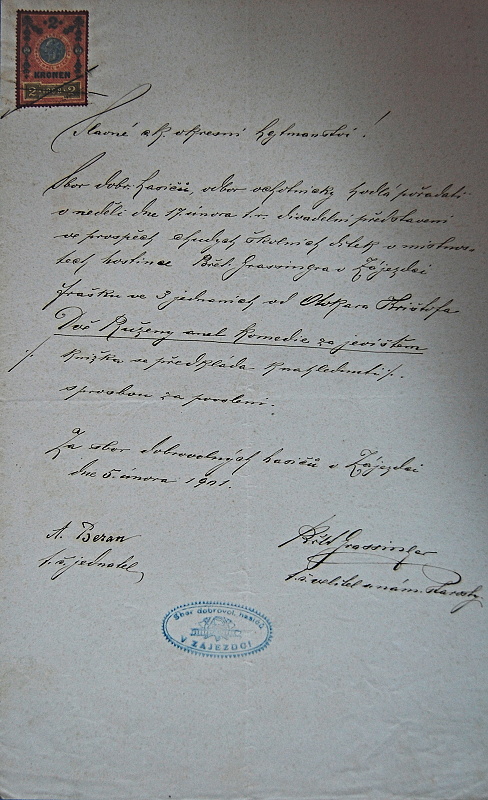 2
KRONEN
2 2
Slavné c.k. okresní hejtmanství!
Sbor dobr. hasičů, odbor ochotnický hodlá pořádati
v neděli dne 17 února t.r. divadelní představení
ve prospěch chudých školních dítek v místnos-
tech hostince Břet. Grassingra v Zájezdci
frašku ve 3 jednáních od Otokara Krištofa
Dvě Růženy aneb Komedie za jevištěm
knížka se předkládá k nahlédnutí /.
s prosbou za povolení.
Za sbor dobrovolných hasičů v Zájezdci
dne 5. února 1901.
A. Beran
t.č. jednatel
Břet Grassinger
t.č. velitel a nám. starosty
Sbor dobrovol. hasičů
V ZÁJEZDCI